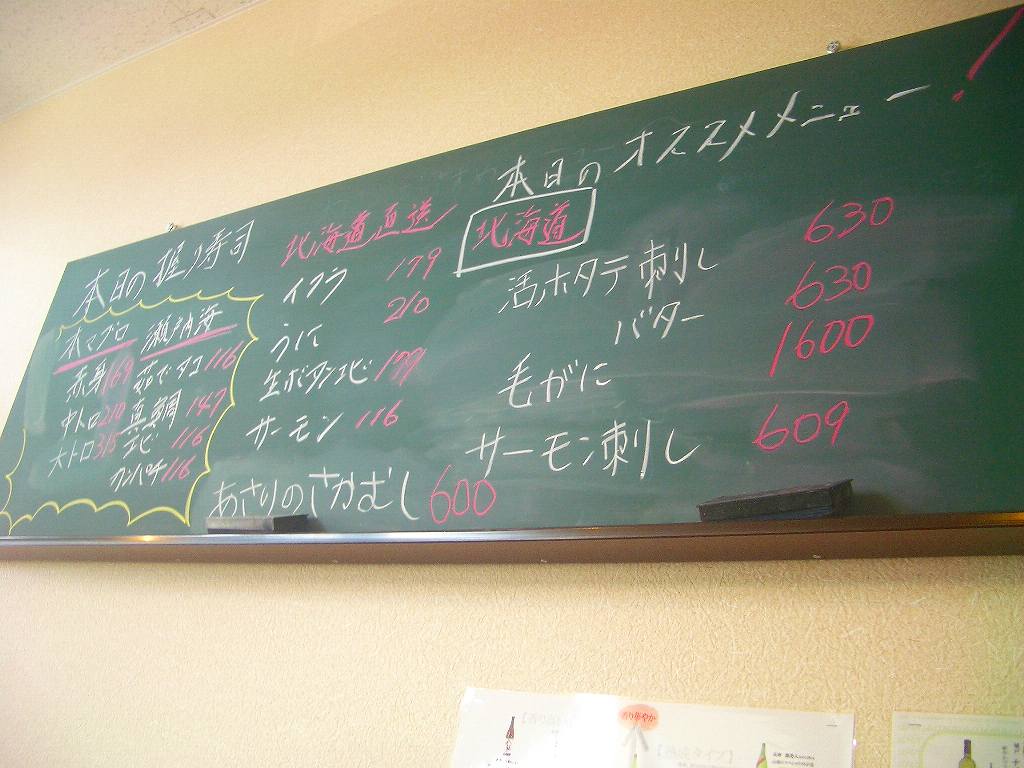 本日のオススメメニュー!
北海道
活ホタテ刺し 630
バター 630
毛がに 1600
サーモン刺し 609
本日の握り寿司
北海道直送
イクラ 179
うに 210
生ボタンエビ 179
サーモン 116
あさりのさかむし 600
本マグロ
赤身 169
中トロ 210
大トロ 315
瀬戸内海
茹でタコ 116
真鯛 147
エビ 116
カンパチ 116
香り華やか